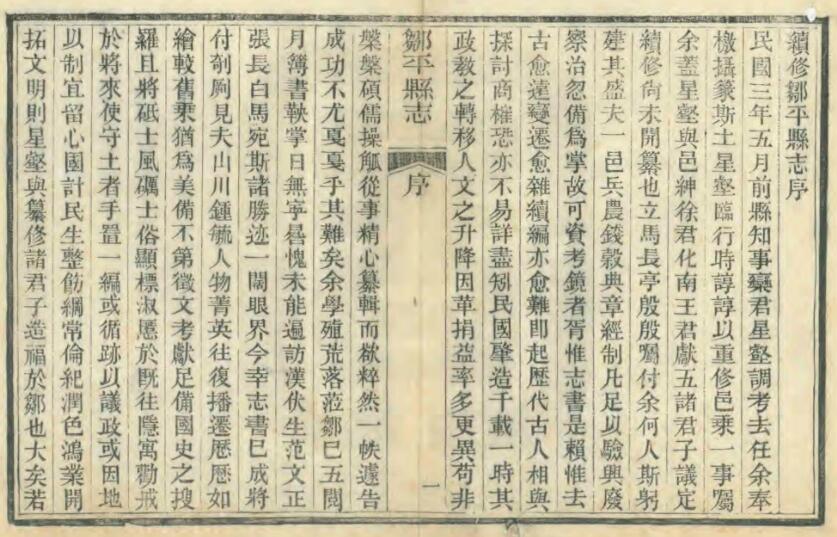 續修鄒平縣志序
民國三年五月前縣知事欒君星壑調考去任余奉
檄攝篆斯土星壑臨行時諄諄以重修邑乘一事囑
余蓋星壑與邑紳徐君化南王君獻五諸君子議定
續修尙未開纂也立馬長亭殷殷囑付余何人斯躬
建其盛夫一邑兵農錢穀典章經制凡足以驗興廢
察治忽備爲掌故可資考鏡者胥惟志書是賴惟去
古愈遠變遷愈雜續編亦愈難即起歷代古人相與
探討商榷恐亦不易詳盡矧民國肇造千載一時其
政教之轉移人文之升降因革損益率多更異苟非
鄒平縣志 序 一
槃槃碩儒操觚從事精心纂輯而欲粹然一帙遽告
成功不尤戛戛乎其難矣余學殖荒落蒞鄒巳五閱
月簿書鞅掌日無寧晷愧未能遍訪漢伏生范文正
張長白馬宛斯諸勝迹一闊眼界今幸志書巳成將
付剞劂見夫山川鍾毓人物菁英往復播遷歷歷如
繪較舊乘猶爲美備不第徵文考獻足備國史之搜
羅且將砥士風礪士俗顯標淑慝於既往隱寓勸戒
於將來使守土者手置一編或循跡以議政或因地
以制宜留心國計民生整飭綱常倫紀潤色鴻業開
拓文明則星壑與纂修諸君子造福於鄒也大矣若